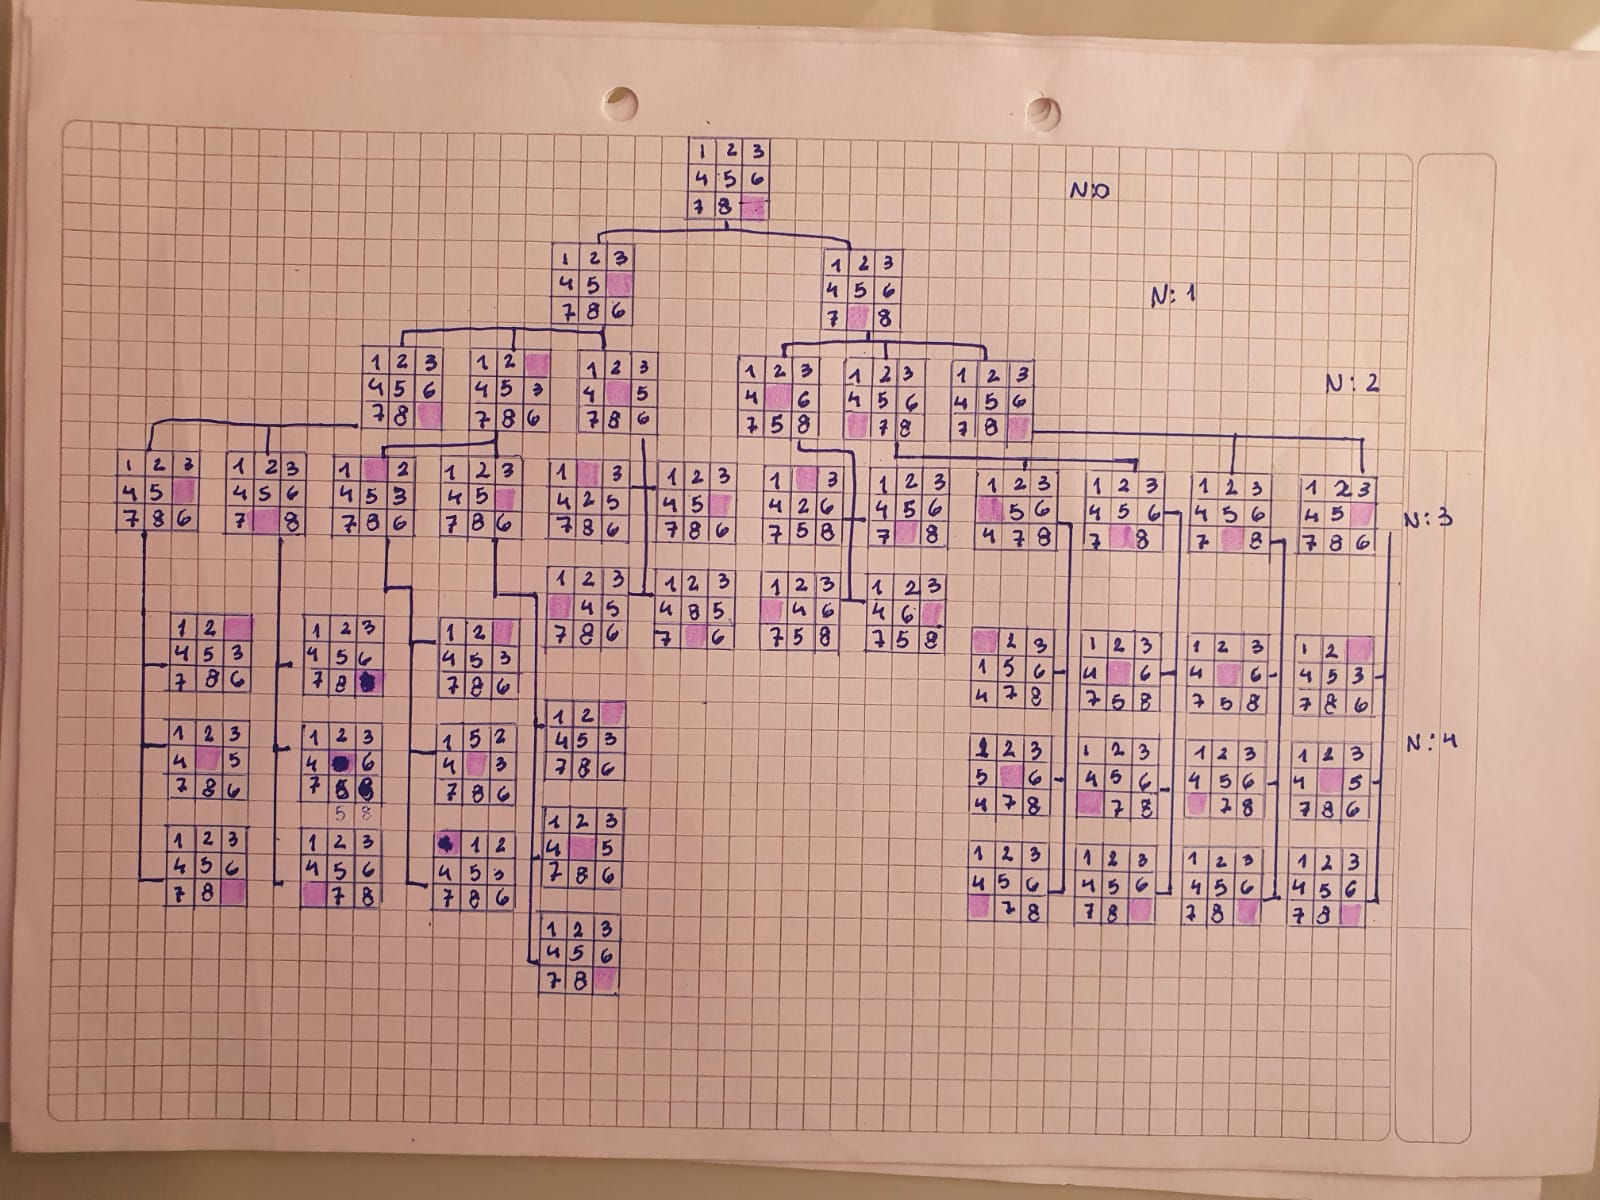 1 2 3
4 5 6
7 8
N:0
1 2 3
4 5
7 8 6
1 2 3
4 5 6
7 8
N:1
1 2 3
4 5 6
7 8
1 2
4 5 3
7 8 6
1 2 3
4 5
7 8 6
1 2 3
4 6
7 5 8
1 2 3
4 5 6
7 8
1 2 3
4 5 6
7 8
N:2
1 2 3
4 5
7 8 6
1 2 3
4 5 6
7 8
1 2
4 5 3
7 8 6
1 2 3
4 5
7 8 6
1 3
4 2 5
7 8 6
1 2 3
4 5
7 8 6
1 3
4 2 6
7 5 8
1 2 3
4 5 6
7 8
1 2 3
5 6
4 7 8
1 2 3
4 5 6
7 8
1 2 3
4 5 6
7 8
1 2 3
4 5
7 8 6
N:3
1 2 3
4 5
7 8 6
1 2 3
4 8 5
7 6
1 2 3
4 6
7 5 8
1 2 3
4 6
7 5 8
1 2
4 5 3
7 8 6
1 2 3
4 5 6
7 8
1 2
4 5 3
7 8 6
2 3
1 5 6
4 7 8
1 2 3
4 6
7 5 8
1 2 3
4 6
7 5 8
1 2
4 5 3
7 8 6
1 2 3
4 5
7 8 6
1 2 3
4 6
7 5 8
5 8
1 5 2
4 3
7 8 6
1 2
4 5 3
7 8 6
1 2 3
5 6
4 7 8
1 2 3
4 5 6
7 8
1 2 3
4 5 6
7 8
1 2 3
4 5
7 8 6
N:4
1 2 3
4 5 6
7 8
1 2 3
4 5 6
7 8
1 2
4 5 3
7 8 6
1 2 3
4 5
7 8 6
1 2 3
4 5 6
7 8
1 2 3
4 5 6
7 8
1 2 3
4 5 6
7 8
1 2 3
4 5 6
7 8
1 2 3
4 5 6
7 8